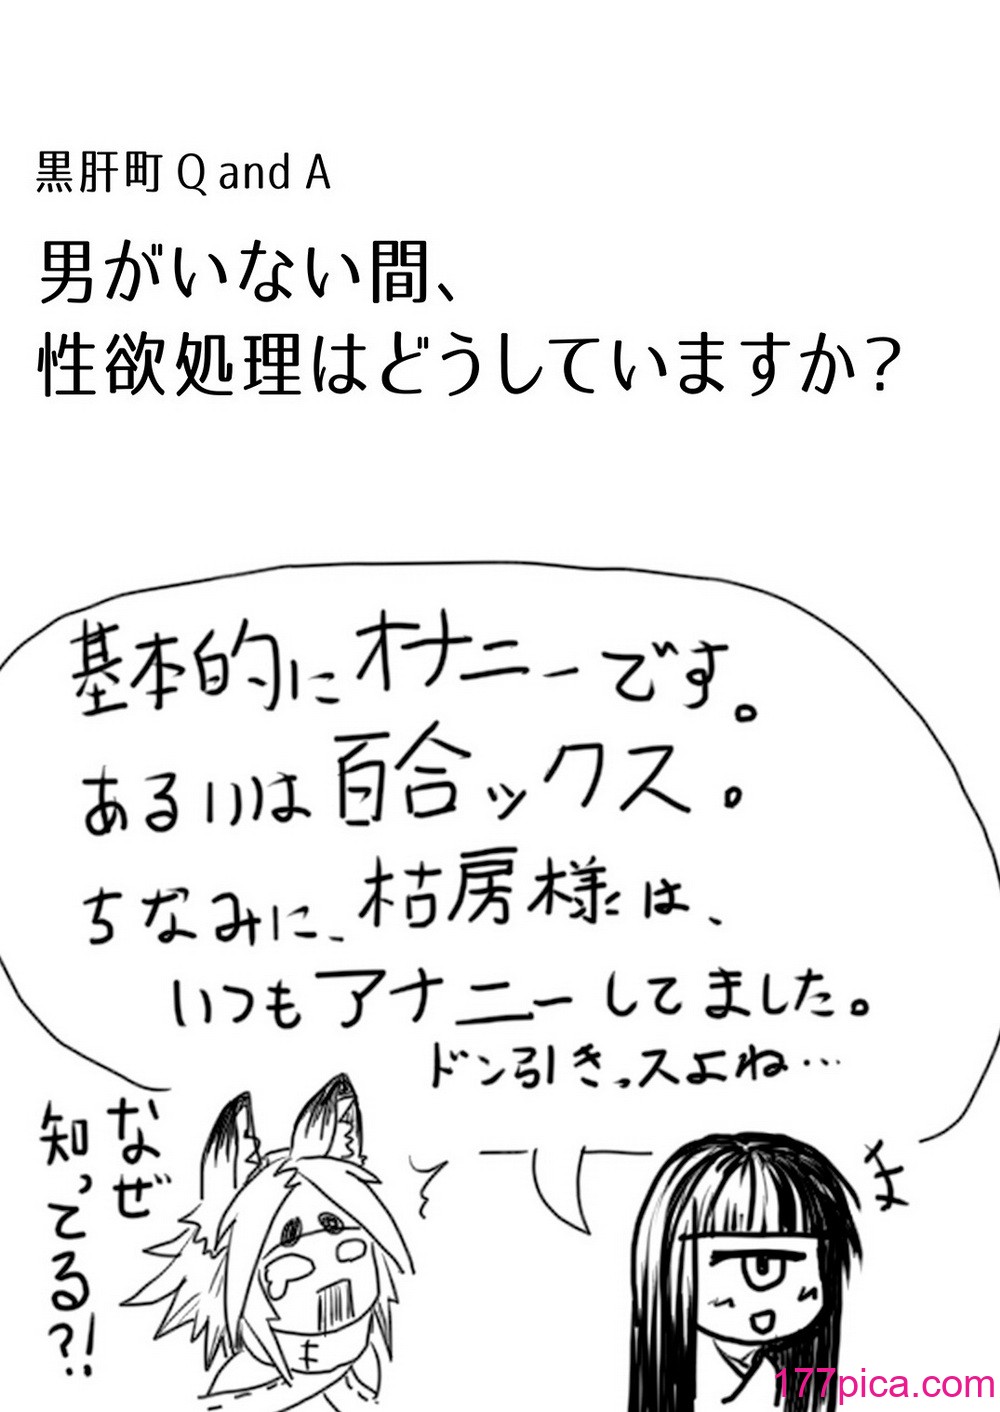 黒肝町 Q and A
男がいない間、
性欲処理はどうしていますか？
基本的にオナニーです。
あるいは百合ックス。
ちなみに、枯房様は、
いつもアナニーしてました。
ドン引きっスよね…
なぜ
知ってる?!
177pica.com